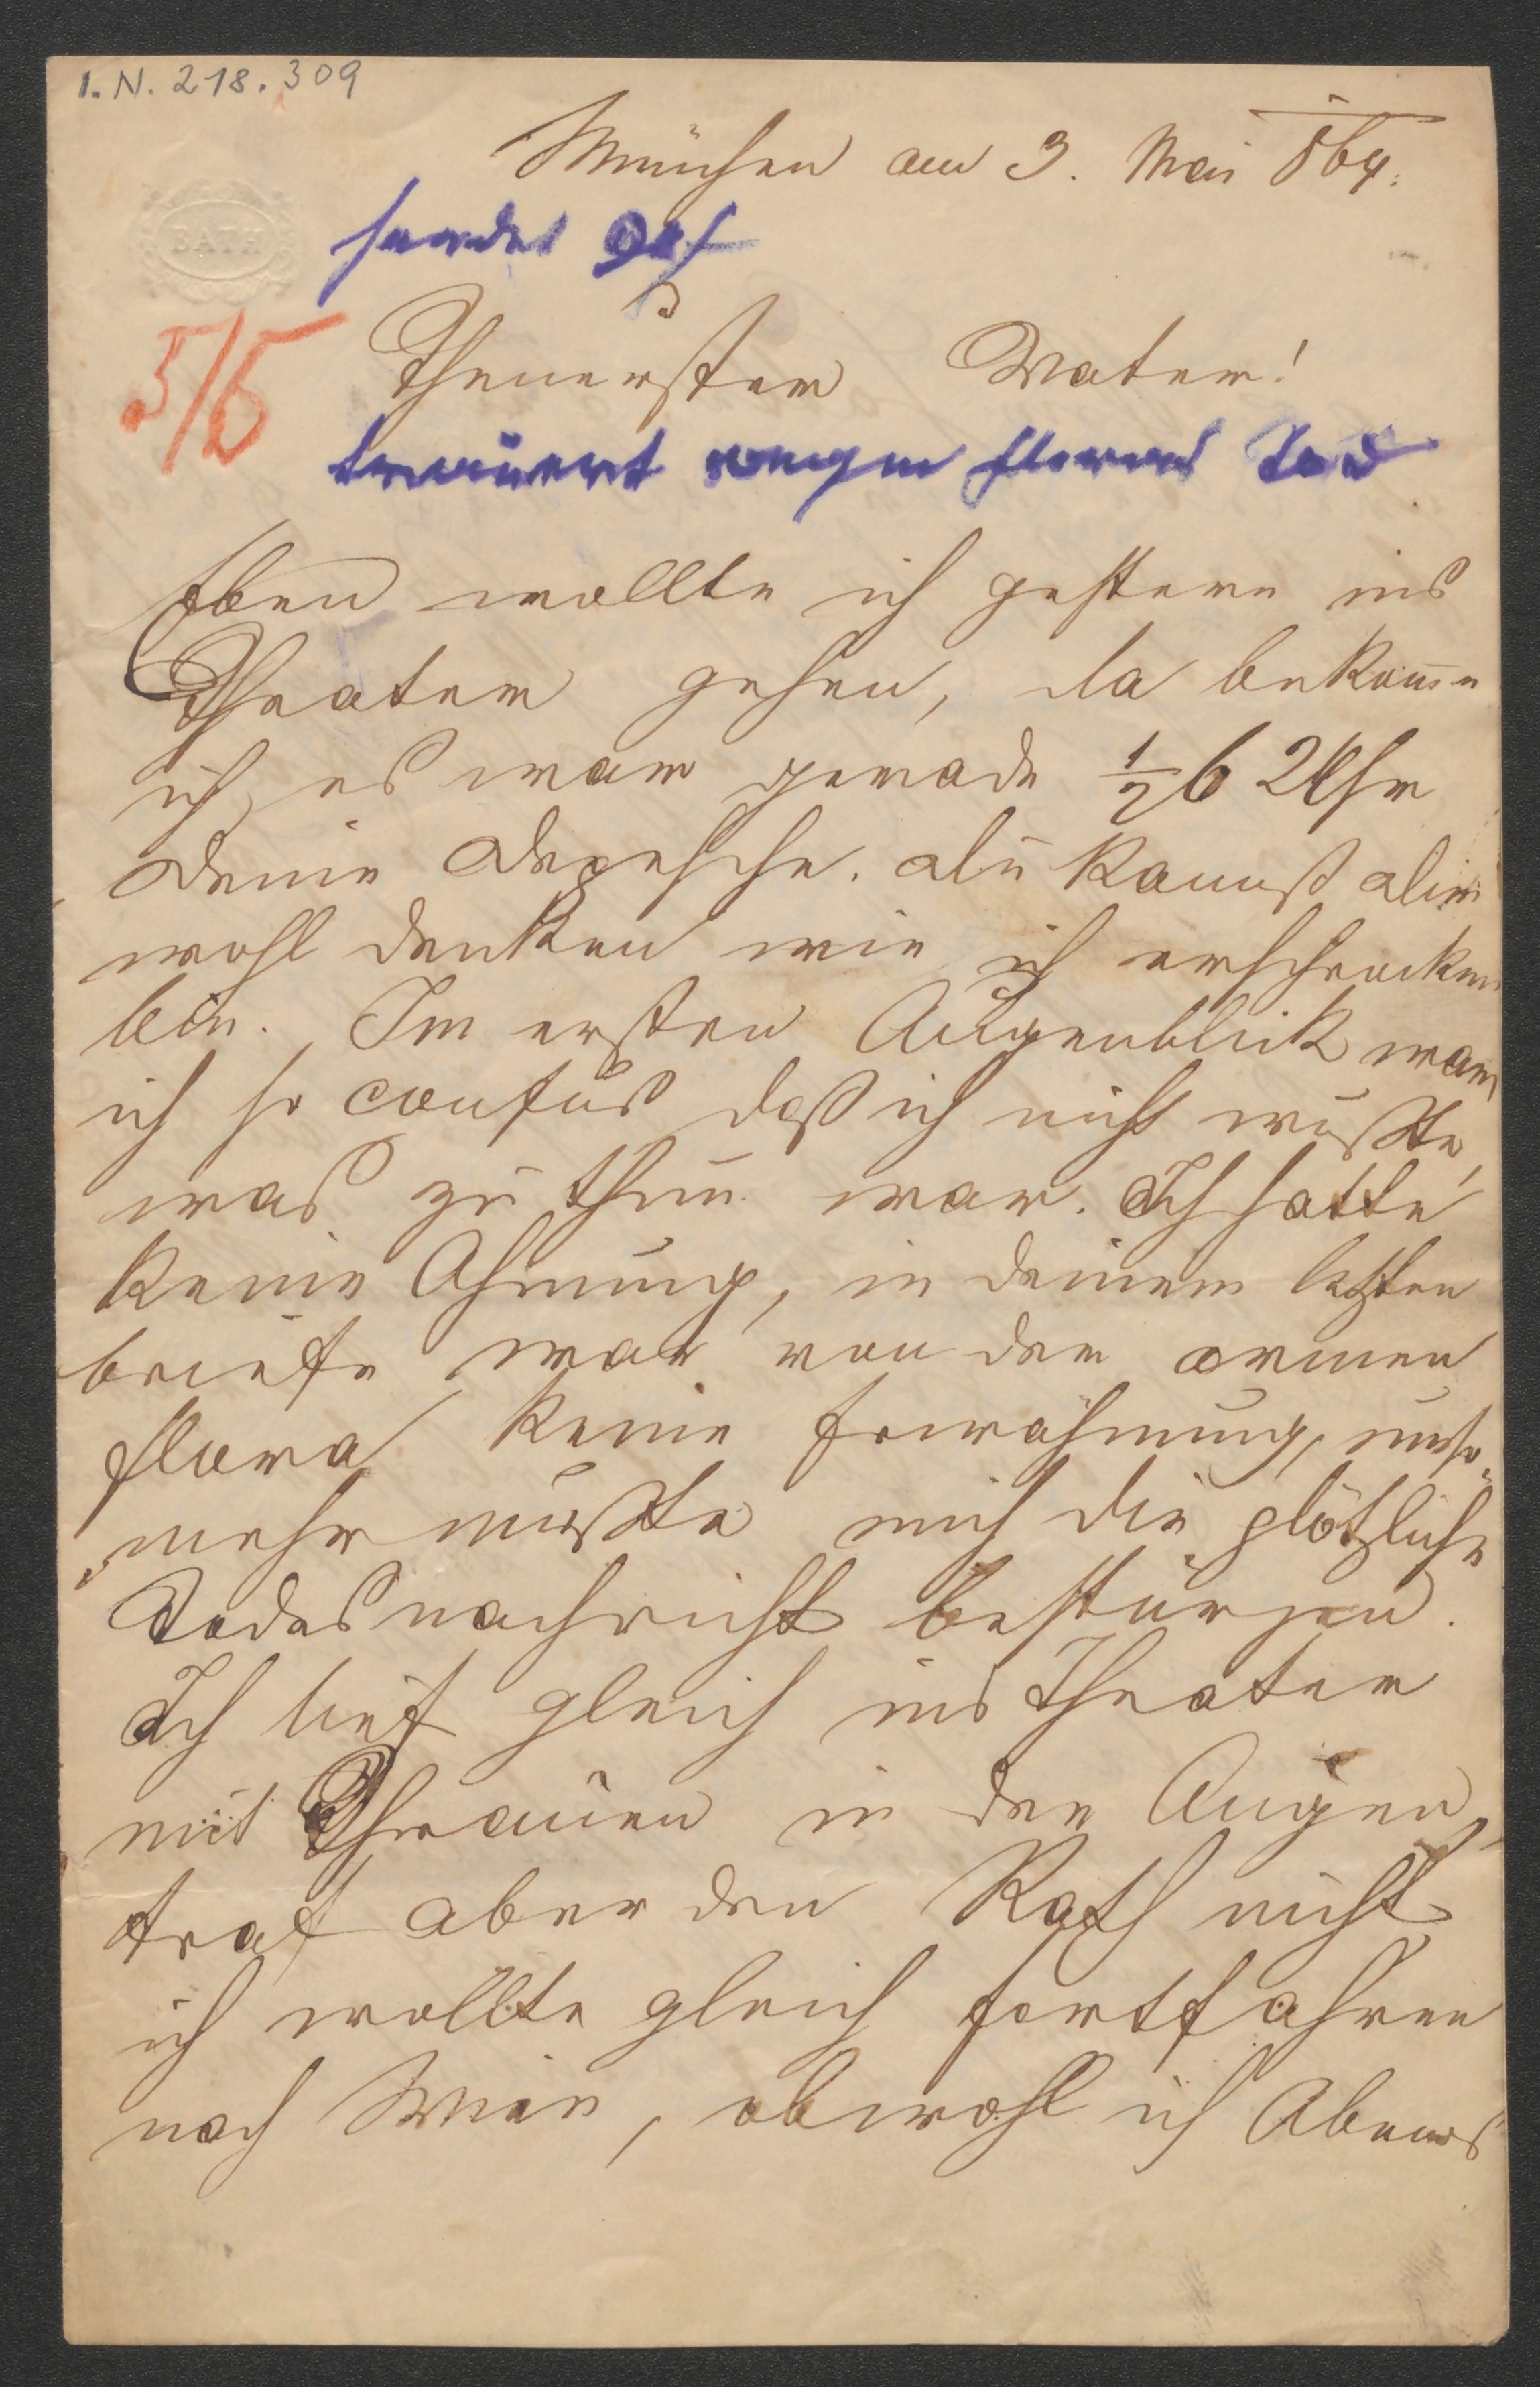 I.N. 218.309
München am 3. Mai 864.
BATH
sendet 90f
5/5
Theuerster Vater!
trauert wegen Floras Tod
Eben wollte ich gestern ins
Theater gehen, da bekom̄e
ich, es war gerade ½6 Uhr
deine Depesche. Du kannst dir
wohl denken wie ich erschrocken
bin. Im ersten Augenblick war
ich so confus daß ich nicht wußte,
was zu thun war. Ich hatte
keine Ahnung, in deinem letzten
briefe war von der armen
Flora keine Erwähnung, umso
mehr mußte mich die plötzliche
Todesnachricht bestürzen.
Ich lief gleich ins Theater
mit Thränen in den Augen,
traf aber den Rath nicht
ich wollte gleich fortfahren
nach Wien, obwohl ich Abends